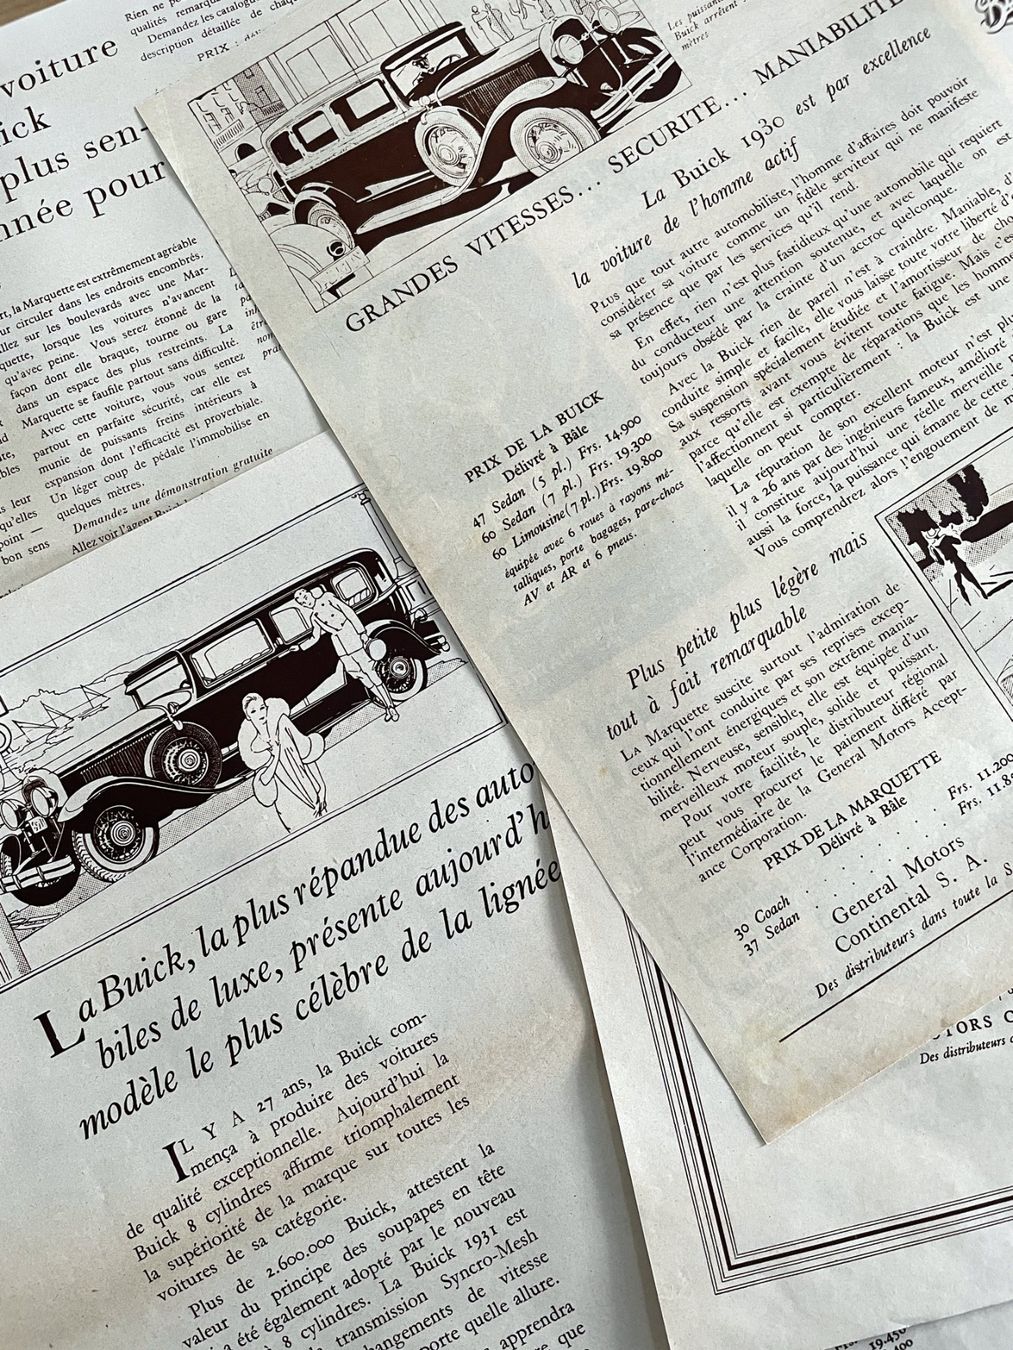 Rien ne
qualités remarqua
Demandez les catalogu
description détaillée de chaq
PRIX :
voiture
ick
plus sen-
nnée pour
rt, la Marquette est extrêmement agréable
ur circuler dans les endroits encombrés.
llez sur les boulevards avec une Mar-
quette, lorsque les voitures n'avancent
qu'avec peine. Vous serez étonné de la
façon dont elle braque, tourne ou gare
dans un espace des plus restreints. La
Marquette se faufile partout sans difficulté.
Avec cette voiture, vous vous sentez
partout en parfaite sécurité, car elle est
munie de puissants freins intérieurs à
expansion dont l'efficacité est proverbiale.
Un léger coup de pédale l'immobilise en
quelques mètres.
Demandez une démonstration gratuite
Allez voir l'agent
leur
qu'elles
point —
bon sens
Les puissants
Buick arrêtent
mètres
GRANDES VITESSES... SECURITE... MANIABILITE
La Buick 1930 est par excellence
la voiture de l'homme actif
PLUS que tout autre automobiliste, l'homme d'affaires doit pouvoir
considérer sa voiture comme un fidèle serviteur qui ne manifeste
sa présence que par les services qu'il rend.
En effet, rien n'est plus fastidieux qu'une automobile qui requiert
du conducteur une attention soutenue, et avec laquelle on est
toujours obsédé par la crainte d'un accroc quelconque.
Avec la Buick rien de pareil n'est à craindre. Maniable, d'
conduite simple et facile, elle vous laisse toute votre liberté d'
Sa suspension spécialement étudiée et l'amortisseur de cho
aux ressorts avant vous évitent toute fatigue. Mais c'es
parce qu'elle est exempte de réparations que les homme
l'affectionnent si particulièrement : la Buick est une
laquelle on peut compter.
La réputation de son excellent moteur n'est plu
il y a 26 ans par des ingénieurs fameux, amélioré
il constitue aujourd'hui une réelle merveille
aussi la force, la puissance qui émane de cette
Vous comprendrez alors l'engouement de
PRIX DE LA BUICK
Délivré à Bâle
47 Sedan (5 pl.) Frs. 14,900
60 Sedan (7 pl.) Frs. 19.300
60 Limousine (7 pl.) Frs. 19.800
équipée avec 6 roues à rayons mé-
talliques, porte bagages, pare-chocs
AV et AR et 6 pneus.
Plus petite plus légère mais
tout à fait remarquable
LA Marquette suscite surtout l'admiration de
ceux qui l'ont conduite par ses reprises excep-
tionnellement énergiques et son extrême mania-
bilité. Nerveuse, sensible, elle est équipée d'un
merveilleux moteur souple, solide et puissant.
Pour votre facilité, le distributeur régional
peut vous procurer le paiement différé par
l'intermédiaire de la General Motors Accept-
ance Corporation.
PRIX DE LA MARQUETTE
Délivré à Bâle
30 Coach . . . . Frs. 11.200
37 Sedan . . . . Frs. 11.8
General Motors
Continental S. A.
Des distributeurs dans toute la S
La Buick, la plus répandue des auto
biles de luxe, présente aujourd'h
modèle le plus célèbre de la lignée
IL Y A 27 ans, la Buick com-
mença à produire des voitures
de qualité exceptionnelle. Aujourd'hui la
Buick 8 cylindres affirme triomphalement
la supériorité de la marque sur toutes les
voitures de sa catégorie.
Plus de 2.600.000 Buick, attestent la
valeur du principe des soupapes en tête
a été également adopté par le nouveau
8 cylindres. La Buick 1931 est
transmission Syncro-Mesh
changements de vitesse
porte quelle allure.
apprendra
que
TORS C
Des distributeurs
19.450